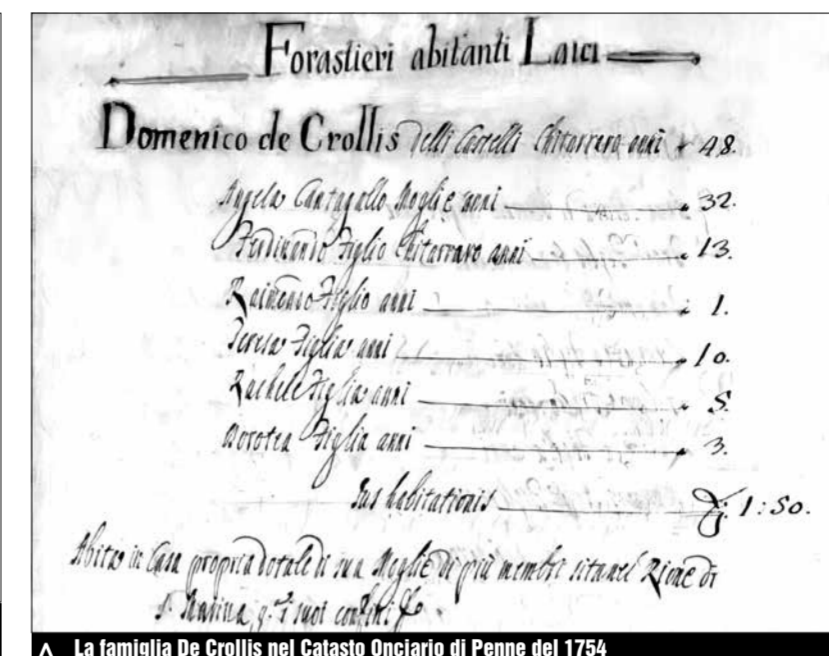 Forastieri abitanti Laici
Domenico de Crollis delli Castelli Chitarraro anni 48.
Angela Cantagallo Moglie anni 32.
Ferdinando Figlio Chitarraro anni 13.
Raimondo Figlio anni 1.
Teresa Figlia anni 10.
Rachele Figlia anni 5.
Dorotea Figlia anni 3.
Jus habitationis 1:50.
Abita in Casa propria dotale di sua Moglie di più membri sita nel Rione di
S. Marina, suoi confini
La famiglia De Crollis nel Catasto Onciario di Penne del 1754